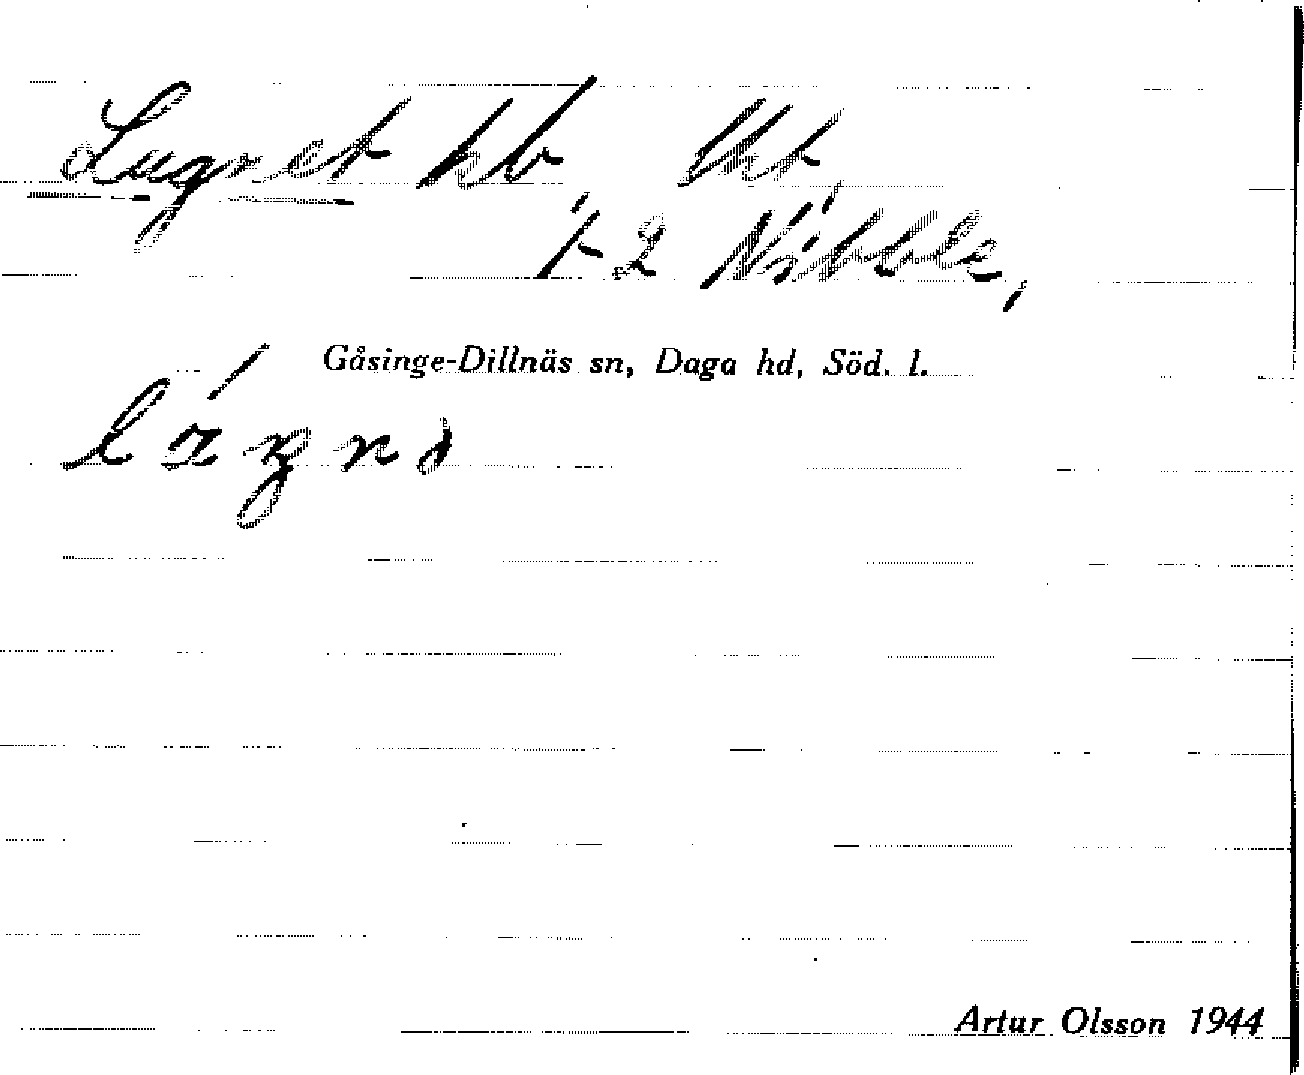 Lugnet hb lht
1-2 Nibble,
Gåsinge-Dillnäs sn, Daga hd, Söd. l.
Artur Olsson 1944